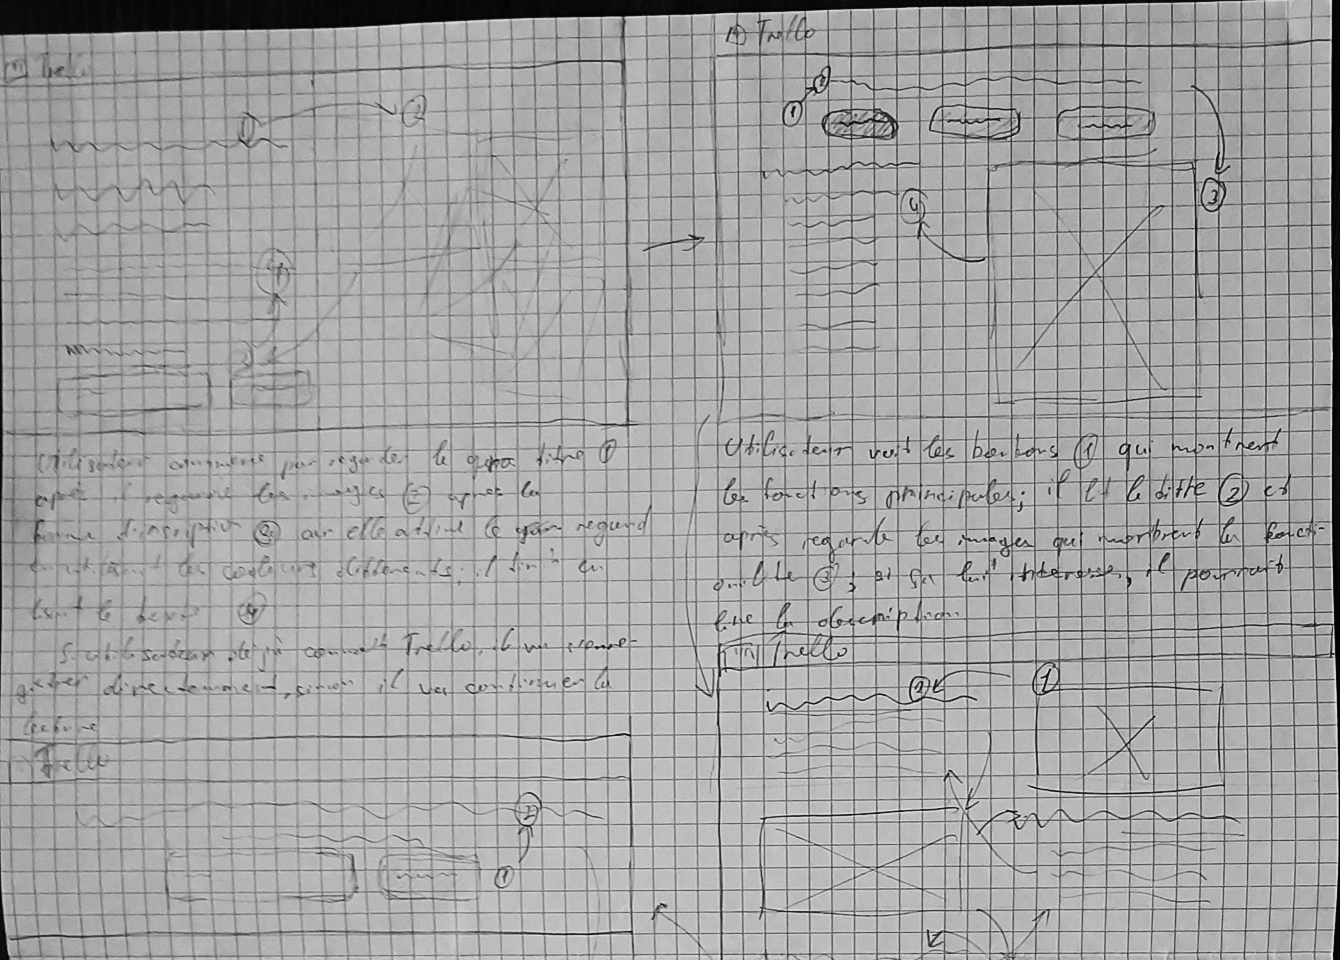 Trello
① ②
④
3
Utilisateur commence par regarder le gros titre ①
après il regarde les images ② après la
forme d'inscription ③ car elle attire le regard
en les couleurs différents; il finit en
lisant le texte ④
Si utilisateur déjà connaît Trello, il va
directement, sinon il va continuer la
lecture
Trello
②
①
Trello
① ②
③
④
Utilisateur voit les boutons ① qui montrent
les fonctions principales; il lit le titre ② et
après regarde les images qui montrent la foncti-
③; si ça lui interesse, il pourrait
lire la description
Trello
② ①